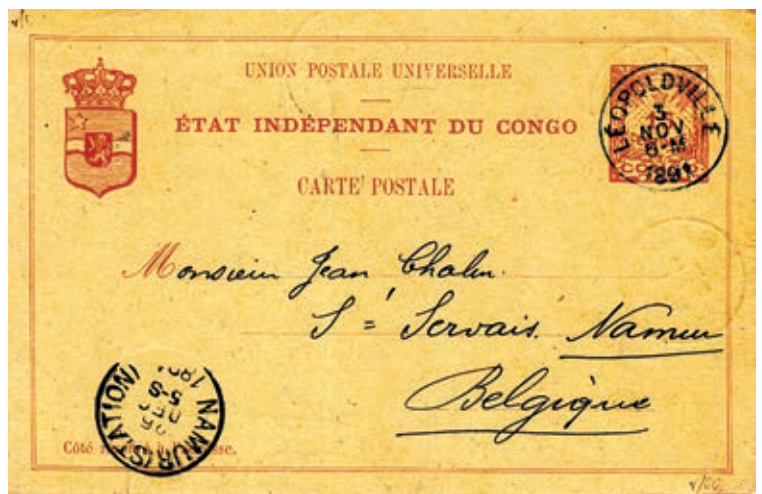 UNION POSTALE UNIVERSELLE
ÉTAT INDÉPENDANT DU CONGO
CARTE POSTALE
LÉOPOLDVILLE
3
NOV
6-M
1891
Monsieur Jean
St Servais. Namur
Belgique
NAMUR (STATION)
25
DEC
5-S
189
Côté